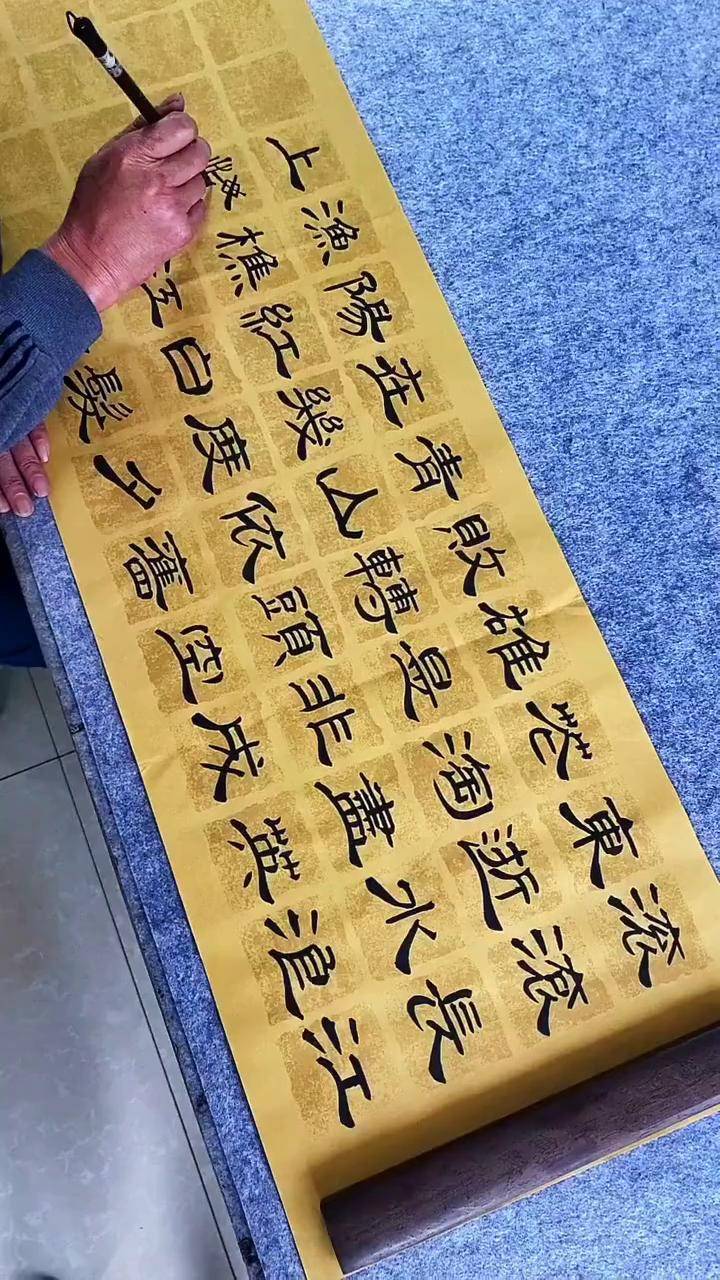 滾滾長江
東逝水浪
花淘盡英
雄是非成
敗轉頭空
青山依舊
在幾度夕
陽紅白髮
漁樵江
上